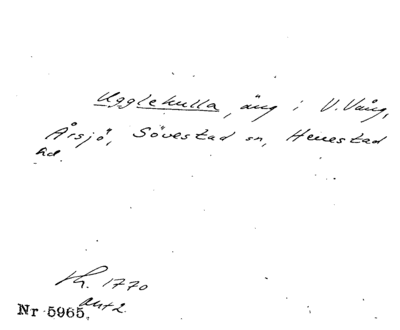 Ugglehulla, äng i V. Vång,
Årsjö, Sövestad sn, Herrestad
hd.
Kh. 1770
akt 2.
Nr 5965.